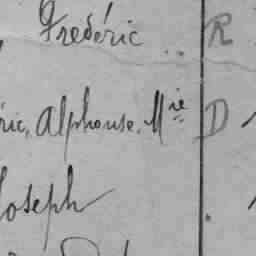 Frédéric R
ric, Alphonse, Mie D
Joseph